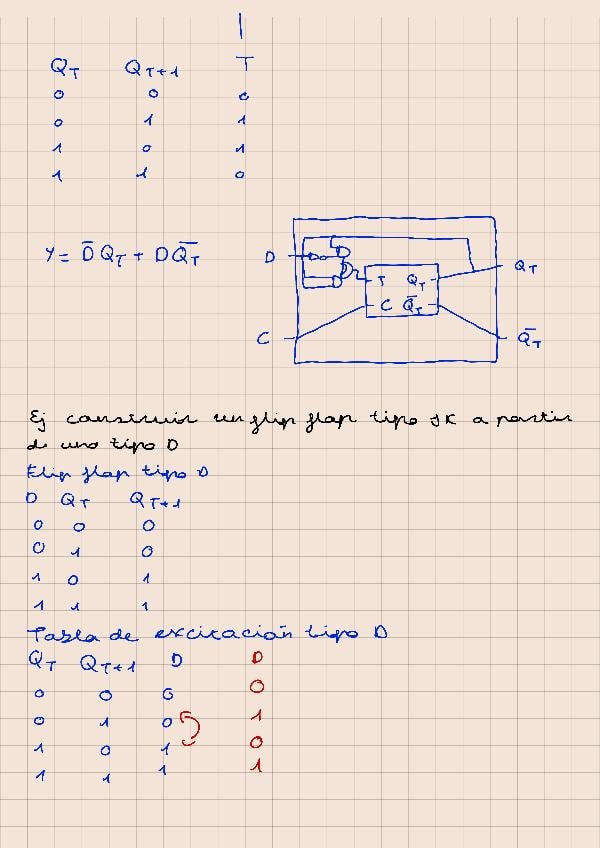 Q_T Q_T+1 T
0 0 0
0 1 1
1 0 1
1 1 0
Y = D̅ Q_T + D Q̅_T
D T Q_T Q_T
C C Q̅_T Q̅_T
Ej construir un flip flap tipo JK a partir
de uno tipo D
Flip flap tipo D
D Q_T Q_T+1
0 0 0
0 1 0
1 0 1
1 1 1
Tabla de excitación tipo D
Q_T Q_T+1 D D
0 0 0 0
0 1 0 1
1 0 1 0
1 1 1 1